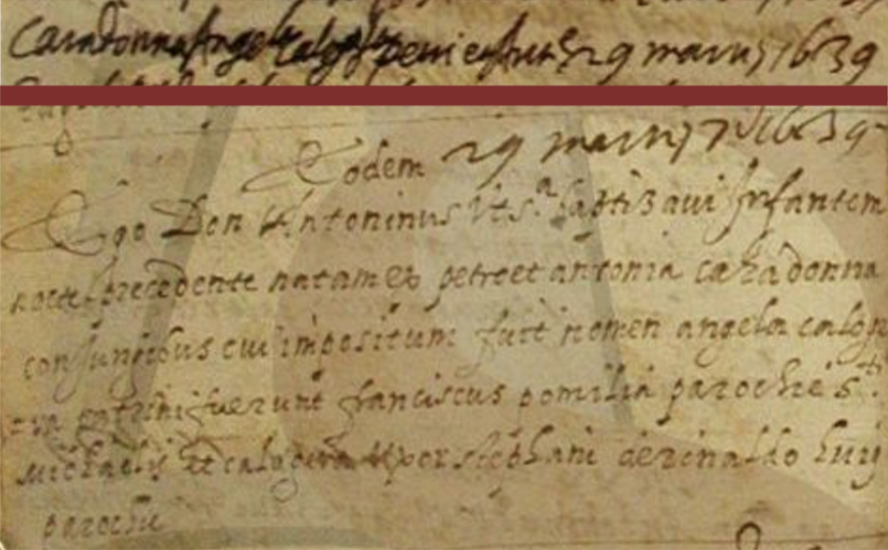 Caradonna Angela calogira 29 martij 1639
Eodem 29 martij 7 1639
Ego Don Antoninus Vt s.a baptizaui Infantem
nocte precedente natam ex petro et antonia caradonna
coniungibus cui impositum fuit nomen angela calogi
ra patrini fuerunt franciscus pomilia parochie s.ti
Michaelis et calogira Uxor stephani de rinaldo huiij
parochie